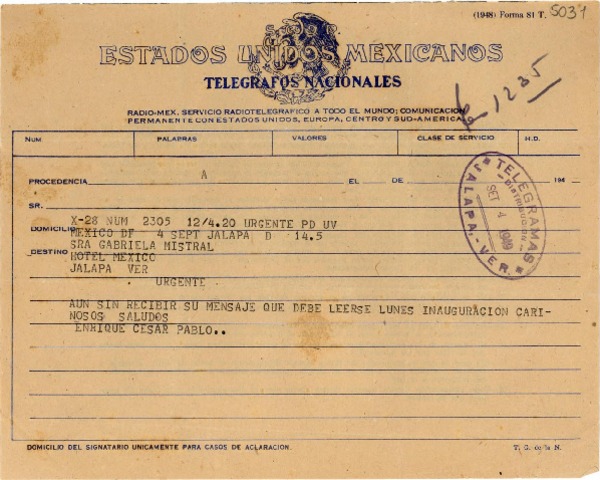 (1948) Forma 81 T. 5031
ESTADOS UNIDOS MEXICANOS
TELEGRAFOS NACIONALES
1235
RADIO-MEX. SERVICIO RADIOTELEGRAFICO A TODO EL MUNDO; COMUNICACION
PERMANENTE CON ESTADOS UNIDOS, EUROPA, CENTRO Y SUD-AMERICA.
NUM PALABRAS VALORES CLASE DE SERVICIO H.D.
PROCEDENCIA A EL DE 194
SR.
X-28 NUM 2305 12/4.20 URGENTE PD UV
DOMICILIO MEXICO DF 4 SEPT JALAPA D 14.5
SRA GABRIELA MISTRAL
DESTINO HOTEL MEXICO
JALAPA VER
URGENTE
AUN SIN RECIBIR SU MENSAJE QUE DEBE LEERSE LUNES INAUGURACION CARI-
NOSOS SALUDOS
ENRIQUE CESAR PABLO..
TELEGRAMAS
DISTRIBUCION
SET 4 1949
JALAPA, VER.
DOMICILIO DEL SIGNATARIO UNICAMENTE PARA CASOS DE ACLARACION.
T. G. de la N.